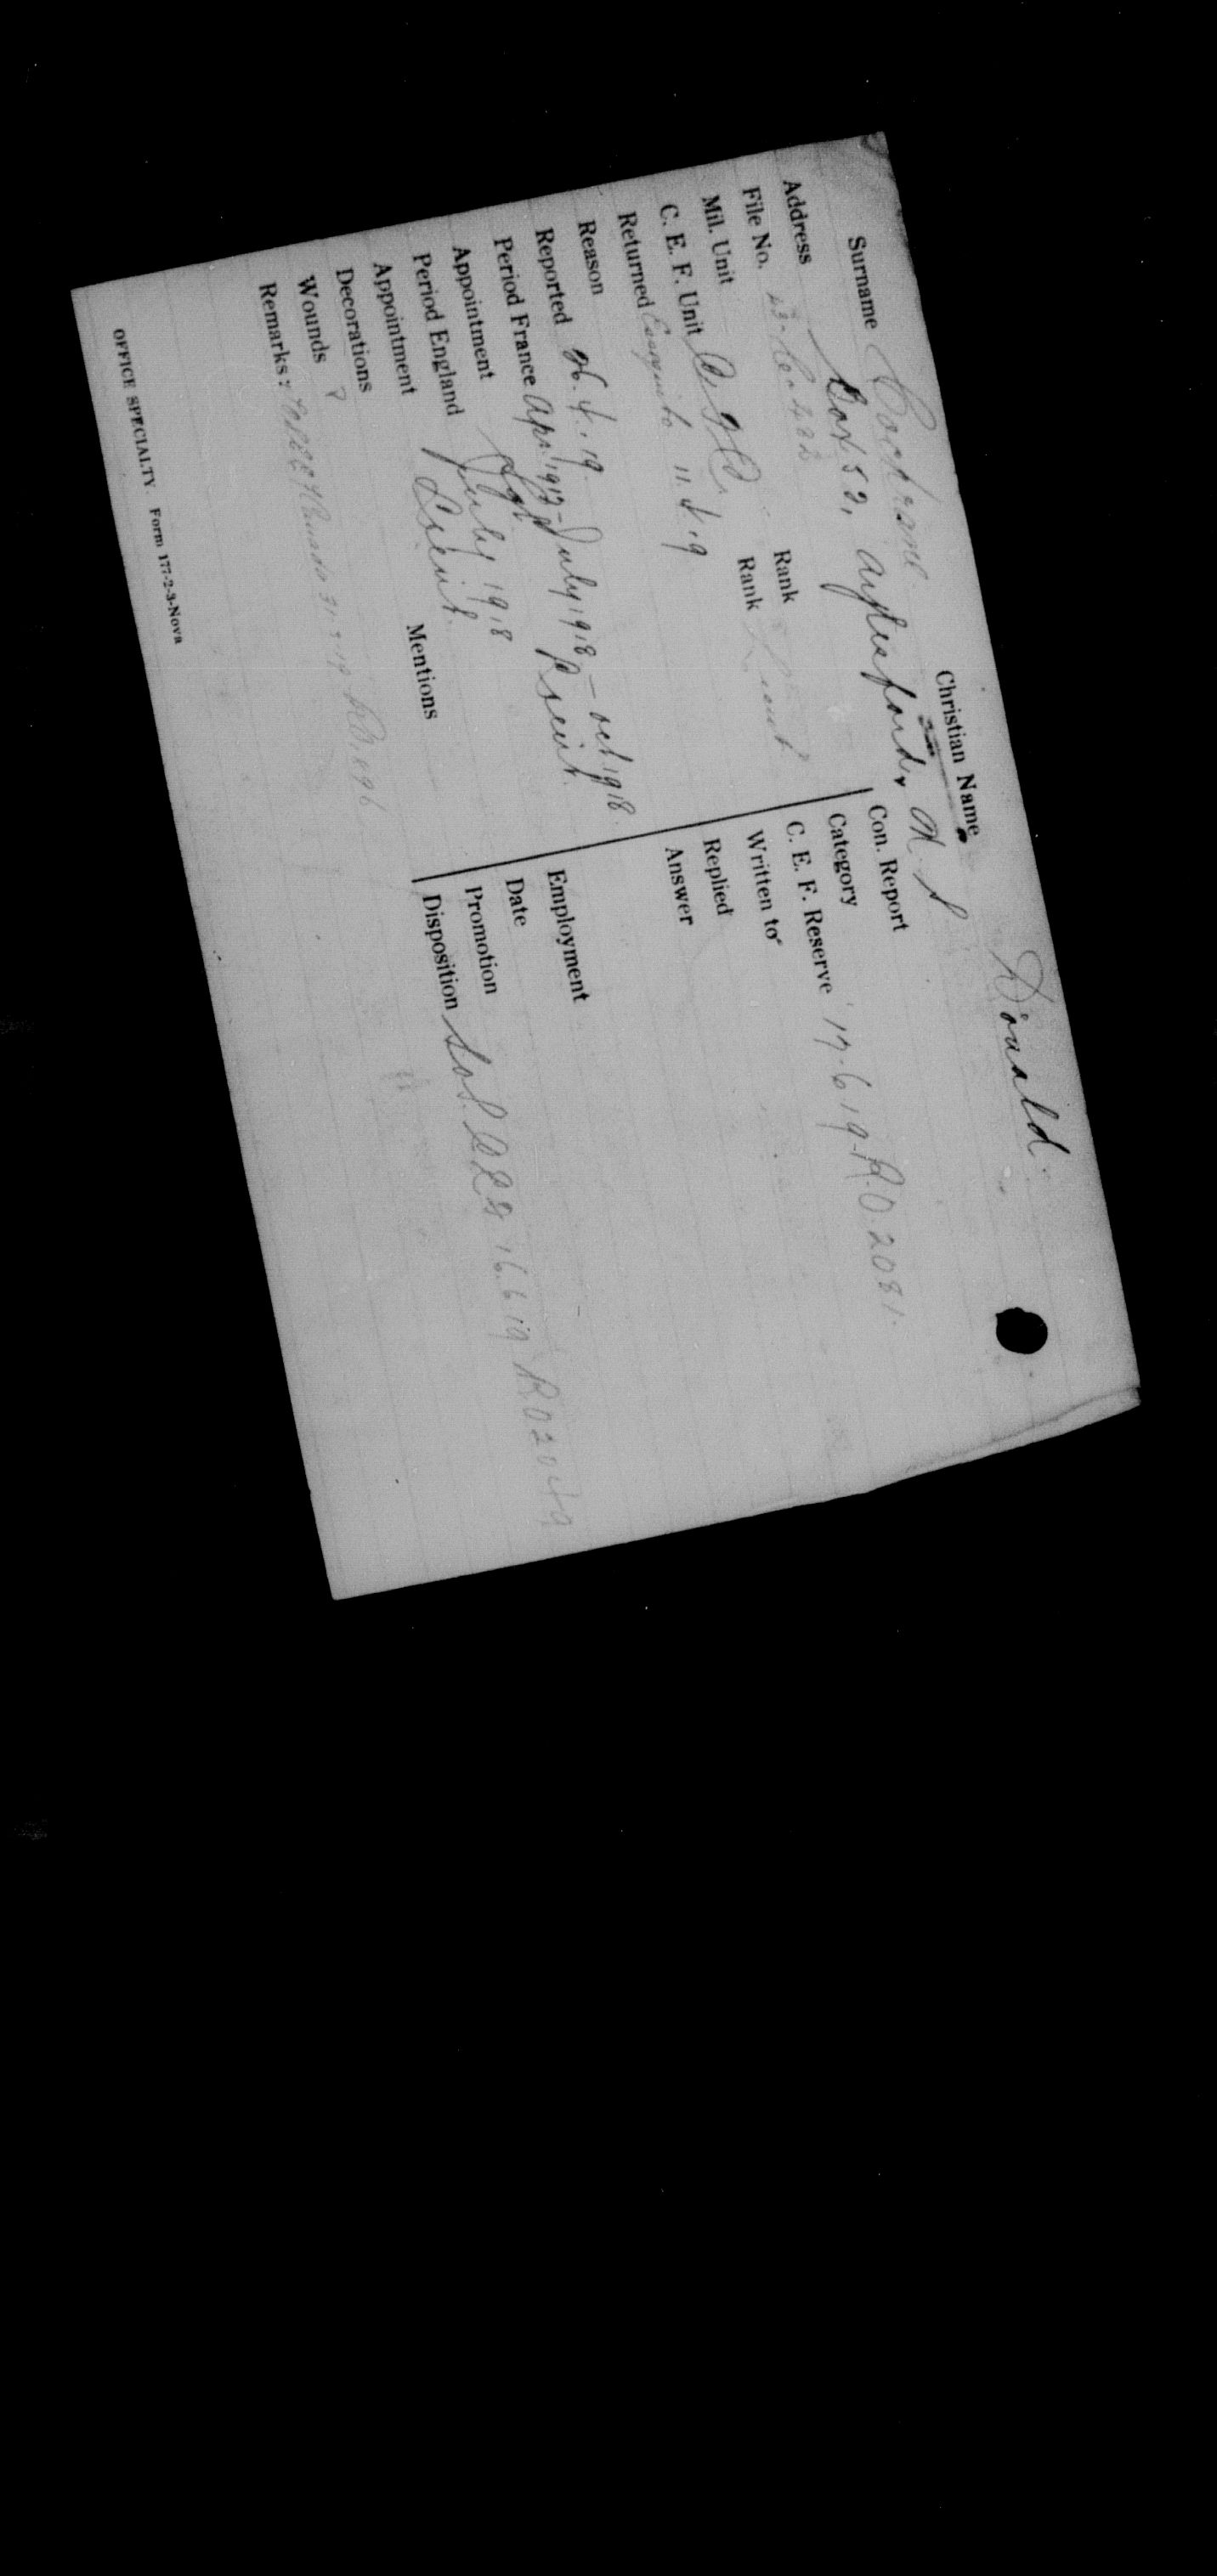 Surname Cochrane Christian Name Donald.
Address Box 52, Aylesford, N S
File No. Rank
Mil. Unit Rank Lieut
C. E. F. Unit
Returned 11.4.19
Reason
Reported 26.4.19.
Period France Apr. 1917-July 1918 - Oct 1918.
Appointment Sgt Lieut.
Period England July 1918
Appointment Lieut.
Decorations Mentions
Wounds
Remarks:
Con. Report
Category
C. E. F. Reserve 17.6.19-R.O. 2081.
Written to
Replied
Answer
Employment
Date
Promotion
Disposition S.O.S. 16.6.19 RO2049
OFFICE SPECIALTY. Form 177-2-3-Nova